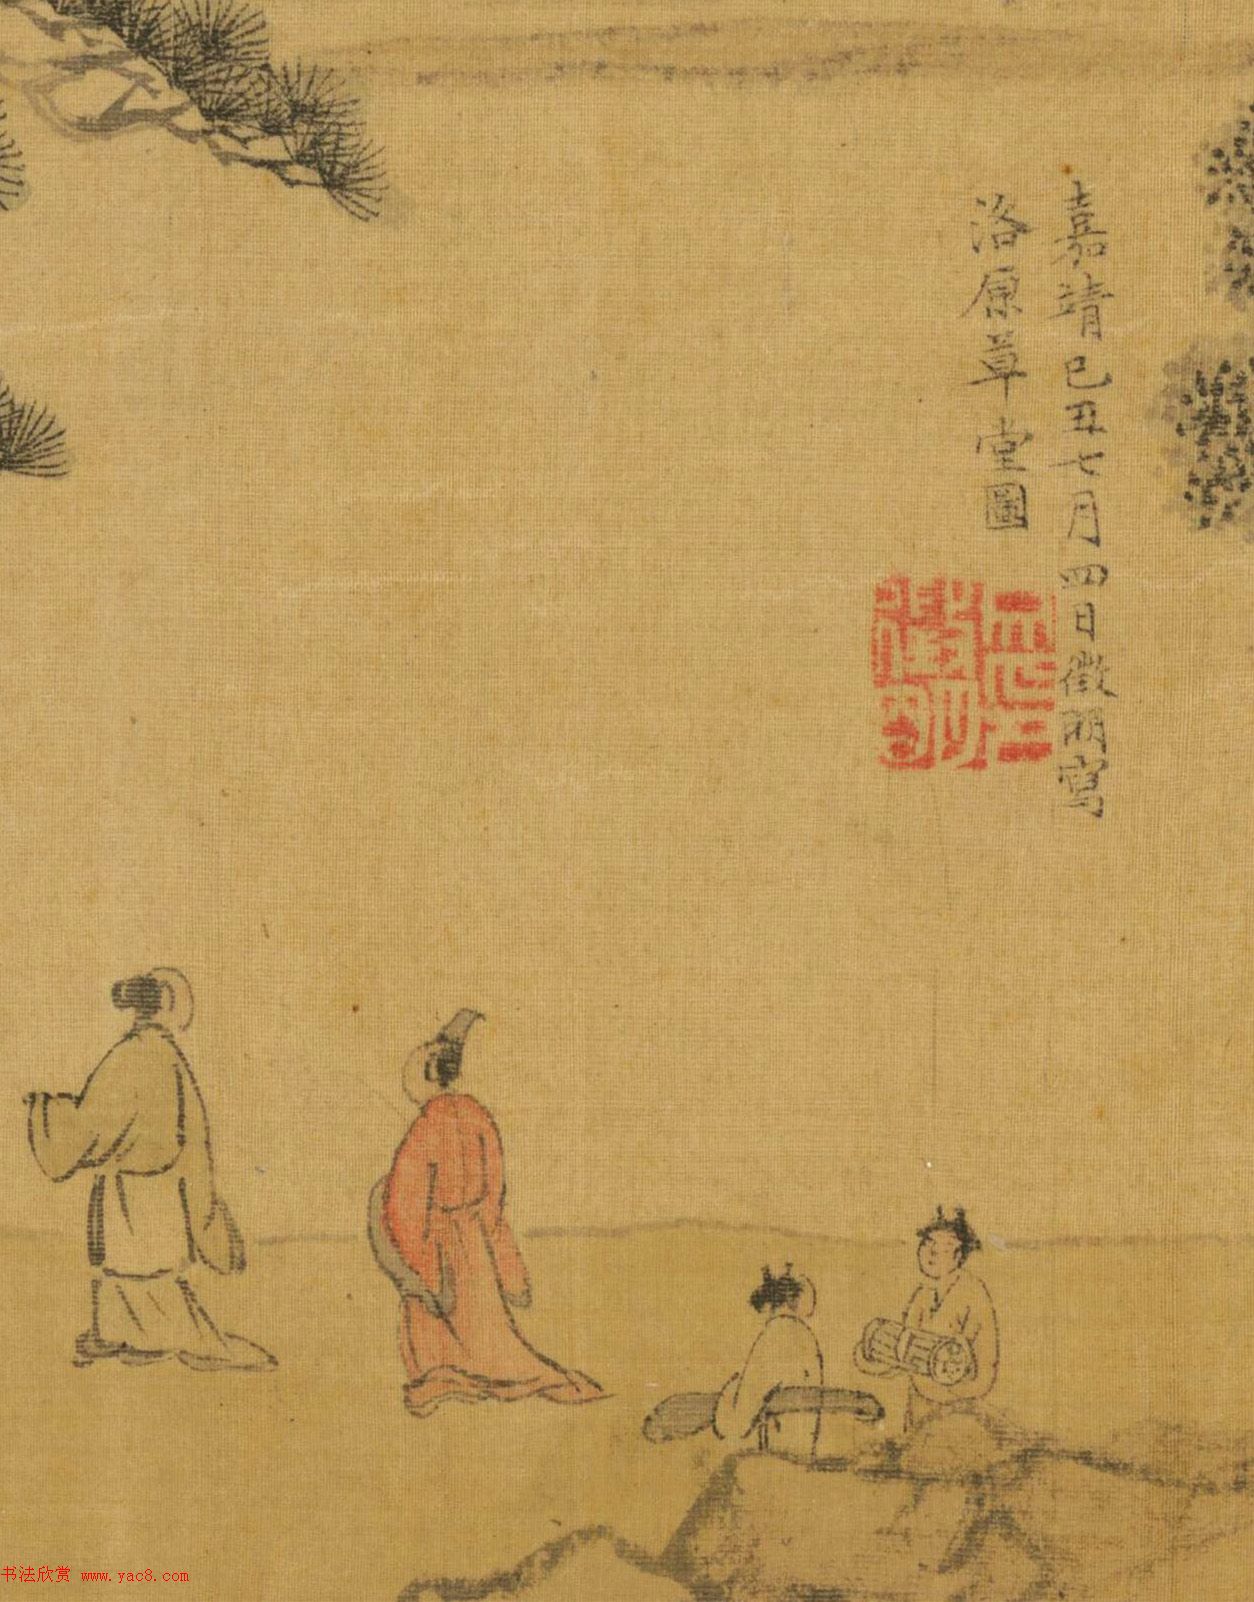 嘉靖己丑七月四日徵明寫
洛原草堂圖
书法欣赏 www.yac8.com